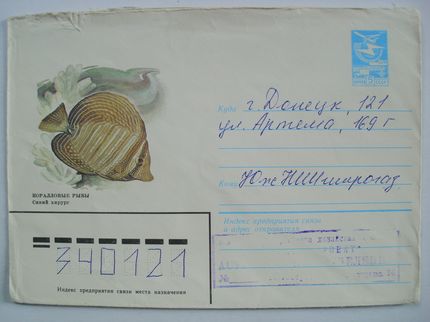 КОРАЛЛОВЫЕ РЫБЫ
Синий хирург
Куда г. Донецк, 121
ул. Артема, 169 г
Кому ЮжНИИгипрогаз
Индекс предприятия связи
и адрес отправителя
340121
Индекс предприятия связи места назначения